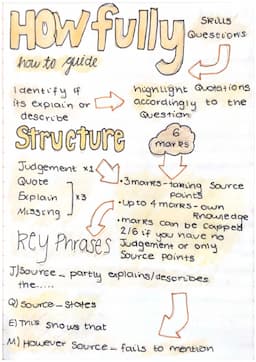 HOW fully
SKILLS
Questions
how to guide
Identify if
its explain or
describe
highlight Quotations
accordingly to the
Question
Structure
6
marks
Judgement x1
Quote
Explain
Missing
x3
• 3 marks - taking Source
points
• up to 4 marks - own
knowledge
• marks can be capped
2/6 if you have no
Judgement or only
Source points
Key Phrases
J) Source _ partly explains/describes
the.....
Q) Source - States
E) This shows that
M) However Source - fails to mention